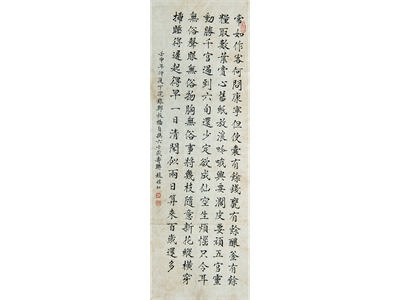 常如作客何問康寧但使囊有餘錢甕有餘釀釜有餘
糧取數葉賞心舊紙放浪吟哦興要濶皮要頑五官靈
動勝千官過到六旬還少定欲成仙空生煩惱只令耳
無俗聲眼無俗物胸無俗事將幾枝隨意新花縱橫穿
插睡得遲起得早一日清閒似兩日算來百歲還多
壬申年仲夏下浣錄鄭板橋自撰六十歲壽聯